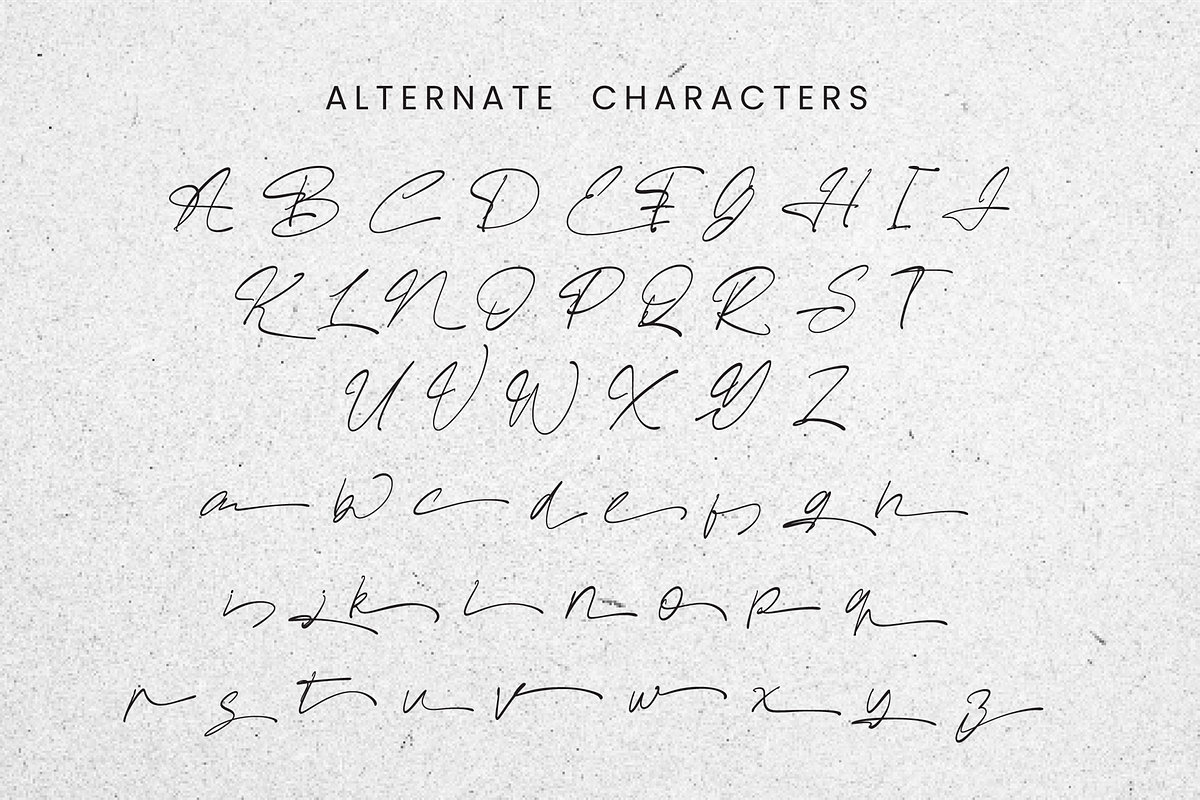 ALTERNATE CHARACTERS
A B C D E F G H I J
K L N O P Q R S T
U V W X Y Z
a b c d e f g h
i j k l n o p q
r s t u v w x y z